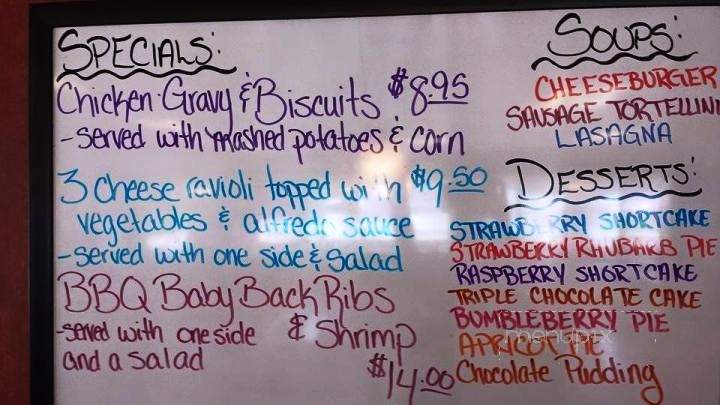 SPECIALS:
Chicken Gravy & Biscuits $8.95
- served with mashed potatoes & corn
3 cheese ravioli topped with $9.50
vegetables & alfredo sauce
- served with one side & salad
BBQ Baby Back Ribs
& Shrimp
- served with one side
and a salad
$14.00
SOUPS:
CHEESEBURGER
SAUSAGE TORTELLINI
LASAGNA
DESSERTS:
STRAWBERRY SHORTCAKE
STRAWBERRY RHUBARB PIE
RASPBERRY SHORTCAKE
TRIPLE CHOCOLATE CAKE
BUMBLEBERRY PIE
APRICOT PIE
Chocolate Pudding